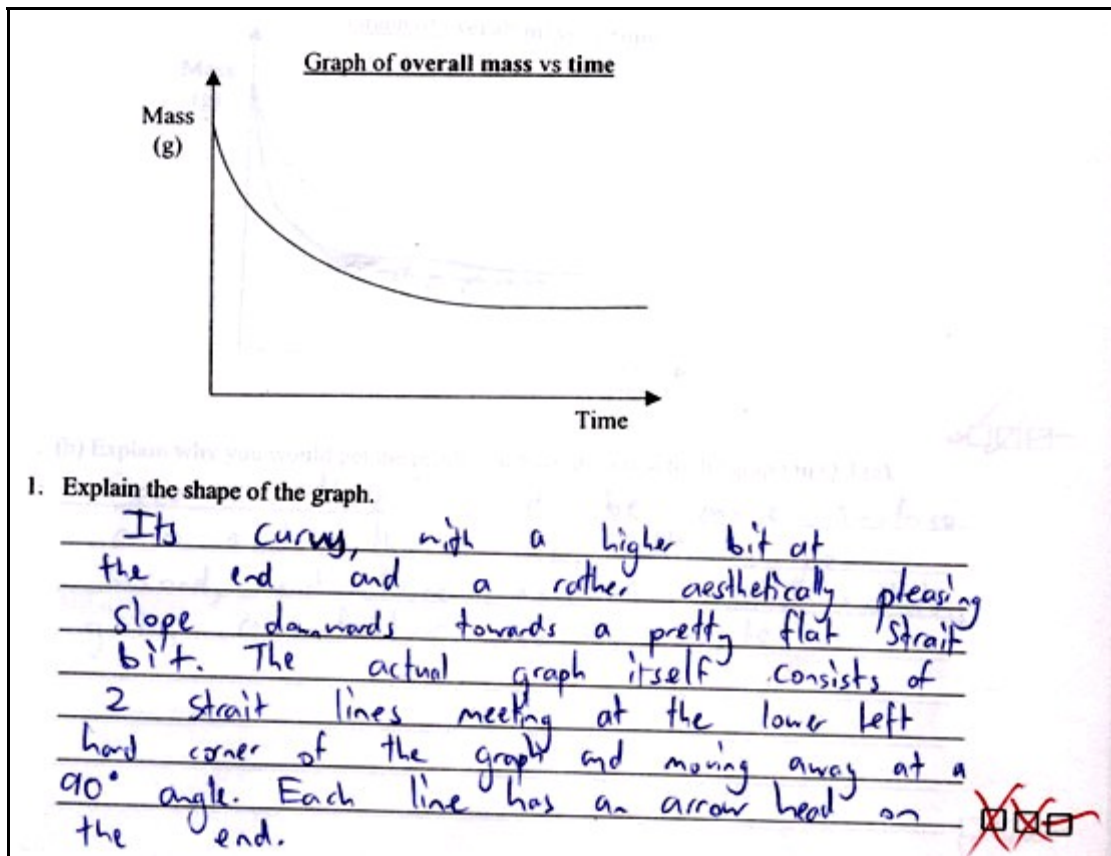 Graph of overall mass vs time
Mass
(g)
Time
1. Explain the shape of the graph.
Its curvy, with a higher bit at
the end and a rather aesthetically pleasing
slope downwards towards a pretty flat strait
bit. The actual graph itself consists of
2 strait lines meeting at the lower left
hand corner of the graph and moving away at a
90° angle. Each line has an arrow head on
the end.